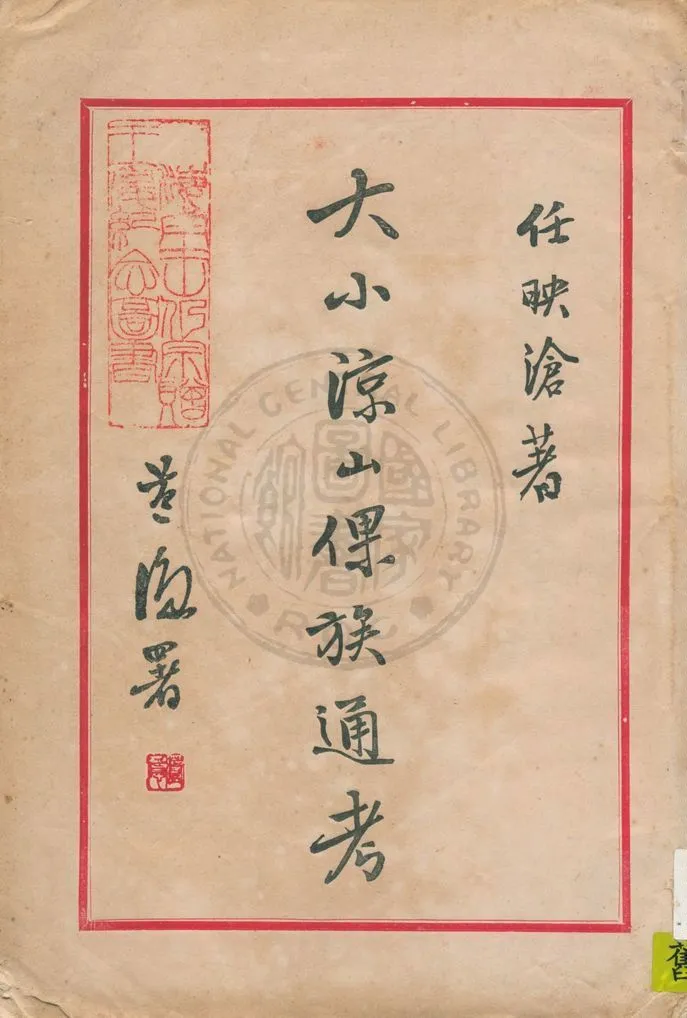 任映滄著
大小涼山倮族通考
署
圖書
NATIONAL CENTRAL LIBRARY
國家
圖書
舊